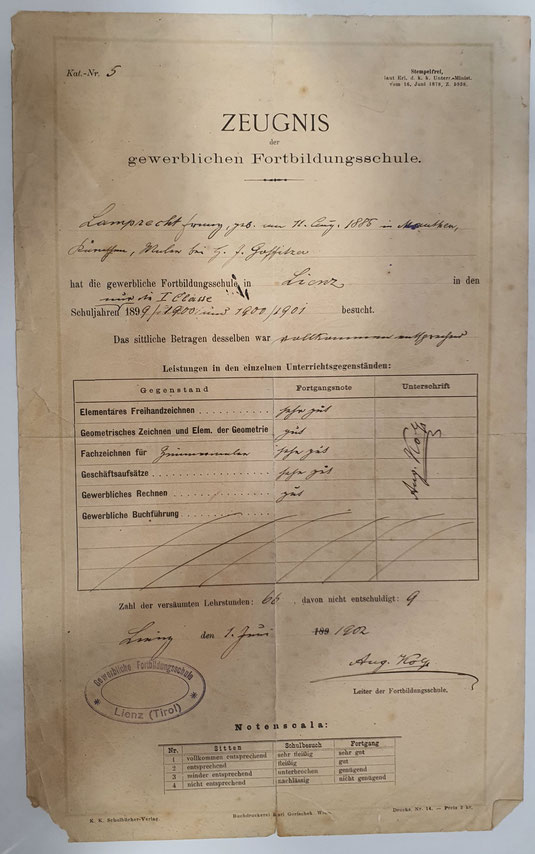 Kat.-Nr. 5
Stempelfrei,
laut Erl. d. k. k. Unterr.-Minist.
vom 16. Juni 1878, Z.
ZEUGNIS
der
gewerblichen Fortbildungsschule.
Lamprecht Franz, geb. am 11. Aug. 1885 in Mauthen,
Kärnthen, Maler bei H. J.
hat die gewerbliche Fortbildungsschule in Lienz in den
nur die I Classe
Schuljahren 1899/1900 und 1900/1901 besucht.
Das sittliche Betragen desselben war vollkommen entsprechend
Leistungen in den einzelnen Unterrichtsgegenständen:
Gegenstand Fortgangsnote Unterschrift
Elementares Freihandzeichnen sehr gut
Geometrisches Zeichnen und Elem. der Geometrie gut
Fachzeichnen für Zimmermaler sehr gut
Geschäftsaufsätze sehr gut
Gewerbliches Rechnen gut
Gewerbliche Buchführung
Aug.
Zahl der versäumten Lehrstunden: 66 davon nicht entschuldigt: 9
Lienz den 1. Juni 189 1902
Aug.
Leiter der Fortbildungsschule.
Gewerbliche Fortbildungsschule
* Lienz (Tirol) *
Notenscala:
Nr. Sitten Schulbesuch Fortgang
1 vollkommen entsprechend sehr fleißig sehr gut
2 entsprechend fleißig gut
3 minder entsprechend unterbrochen genügend
4 nicht entsprechend nachlässig nicht genügend
K. K. Schulbücher-Verlag.
Buchdruckerei Karl Gorischek, Wien
Drucks. Nr. 14. — Preis 2 kr.